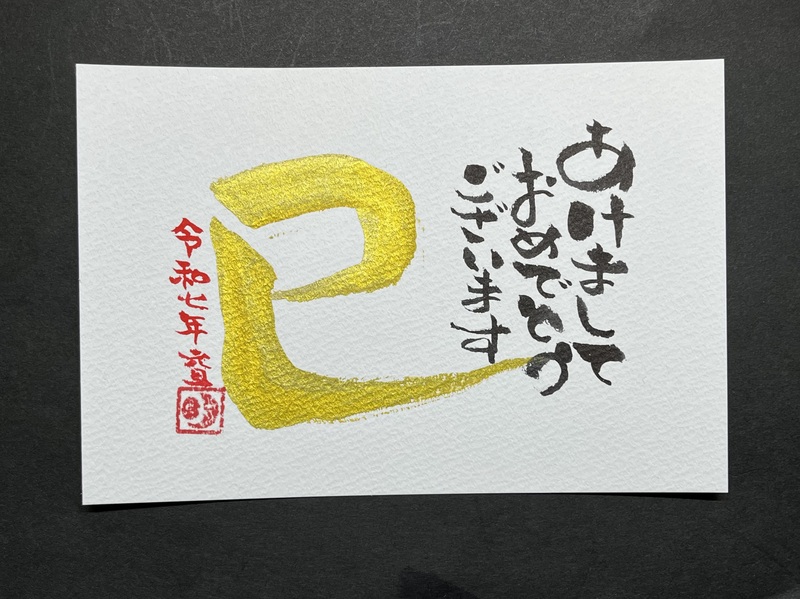 あけまして
おめでとう
ございます
巳
令和七年